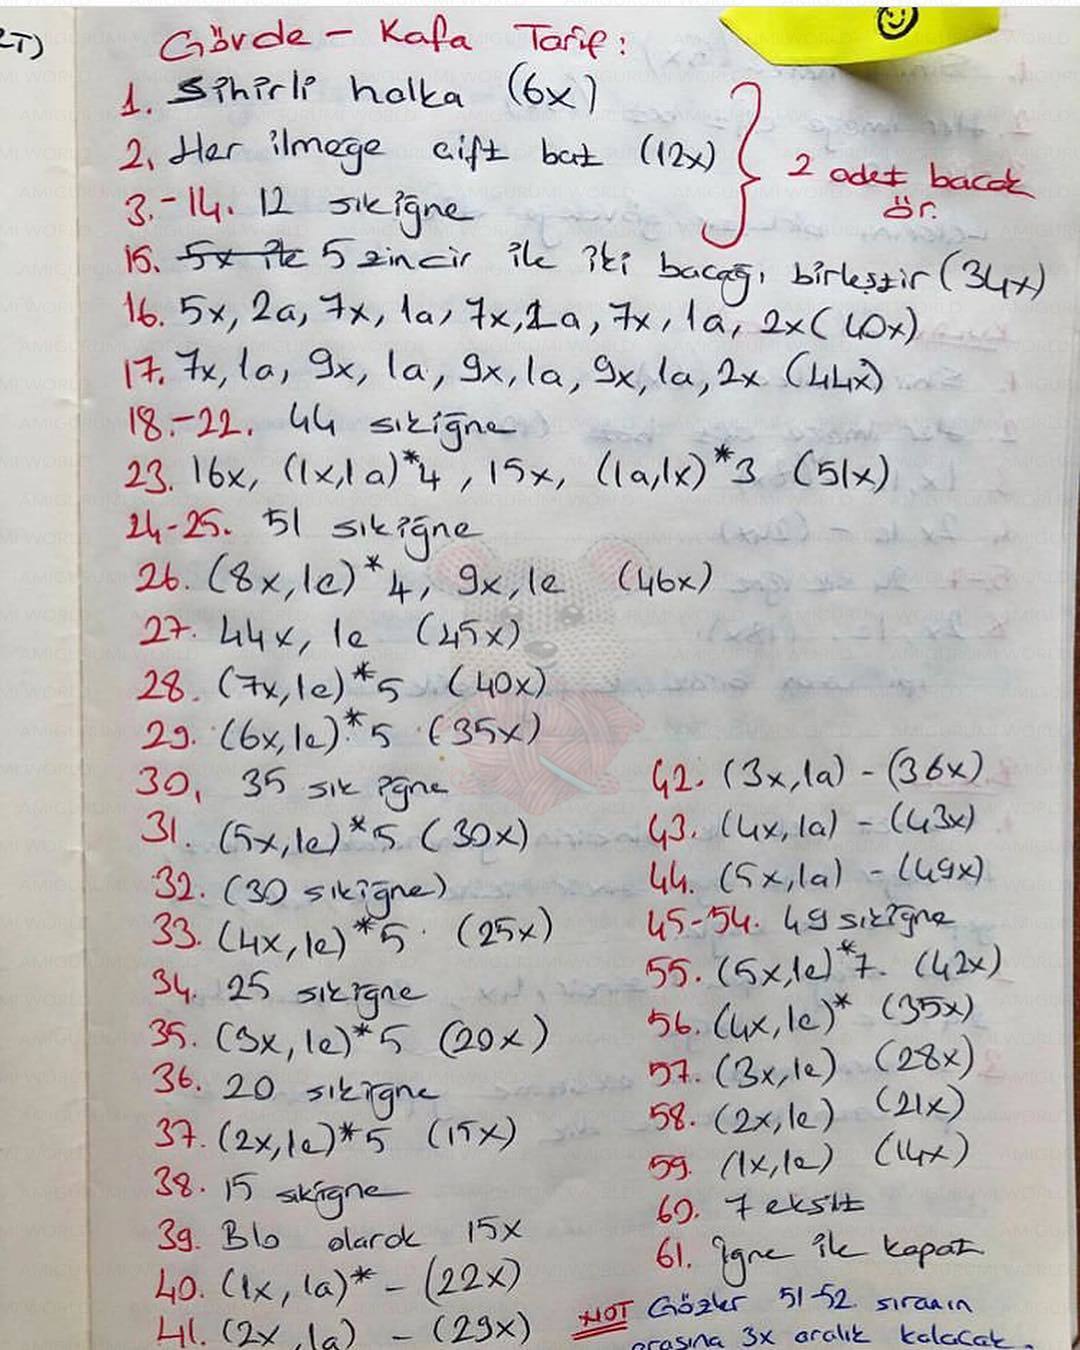 Gövde - Kafa Tarif:
1. Sihirli halka (6x)
2. Her ilmeğe çift bat (12x)
3.-14. 12 sıkiğne
2 adet bacak
ör.
15. 5x ile 5 zincir ile iki bacağı birleştir (34x)
16. 5x, 2a, 7x, 1a, 7x, 2a, 7x, 1a, 2x (40x)
17. 7x, 1a, 9x, 1a, 9x, 1a, 9x, 1a, 2x (44x)
18.-22. 44 sıkiğne
23. 16x, (1x,1a)*4, 15x, (1a,1x)*3 (51x)
24-25. 51 sıkiğne
26. (8x,1e)*4, 9x,1e (46x)
27. 44x, 1e (45x)
28. (7x,1e)*5 (40x)
29. (6x,1e)*5 (35x)
30. 35 sık iğne
31. (5x,1e)*5 (30x)
32. (30 sıkiğne)
33. (4x,1e)*5 (25x)
34. 25 sıkiğne
35. (3x,1e)*5 (20x)
36. 20 sıkiğne
37. (2x,1e)*5 (15x)
38. 15 sıkiğne
39. Blo olarak 15x
40. (1x,1a)* - (22x)
41. (2x,1a) - (29x)
42. (3x,1a) - (36x)
43. (4x,1a) - (43x)
44. (5x,1a) - (49x)
45-54. 49 sıkiğne
55. (5x,1e)*7. (42x)
56. (4x,1e)* (35x)
57. (3x,1e) (28x)
58. (2x,1e) (21x)
59. (1x,1e) (14x)
60. 7 eksilt
61. İğne ile kapat
NOT Gözler 51-52. sıranın
arasına 3x aralık kalacak.